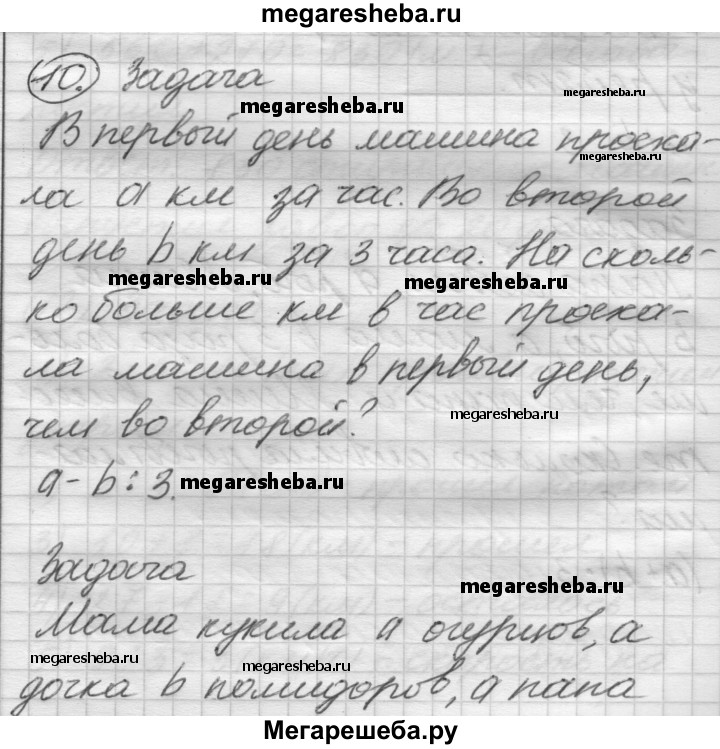 megaresheba.ru
10. Задача
megaresheba.ru
megaresheba.ru
В первый день машина проеха-
megaresheba.ru
ла a км за час. Во второй
день b км за 3 часа. На сколь-
megaresheba.ru
megaresheba.ru
ко больше км в час проеха-
ла машина в первый день,
чем во второй?
megaresheba.ru
a - b : 3.
megaresheba.ru
Задача
megaresheba.ru
Мама купила a огурцов, а
megaresheba.ru
megaresheba.ru
дочка b помидоров, а папа
Мегарешеба.ру